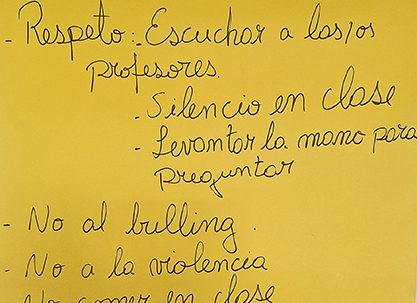 - Respeto: - Escuchar a las/os
profesores.
- Silencio en clase
- Levantar la mano para
preguntar
- No al bulling.
- No a la violencia
- No comer en clase